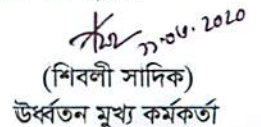 ১১.০৬.২০২০
(শিবলী সাদিক)
উর্ধ্বতন মুখ্য কর্মকর্তা